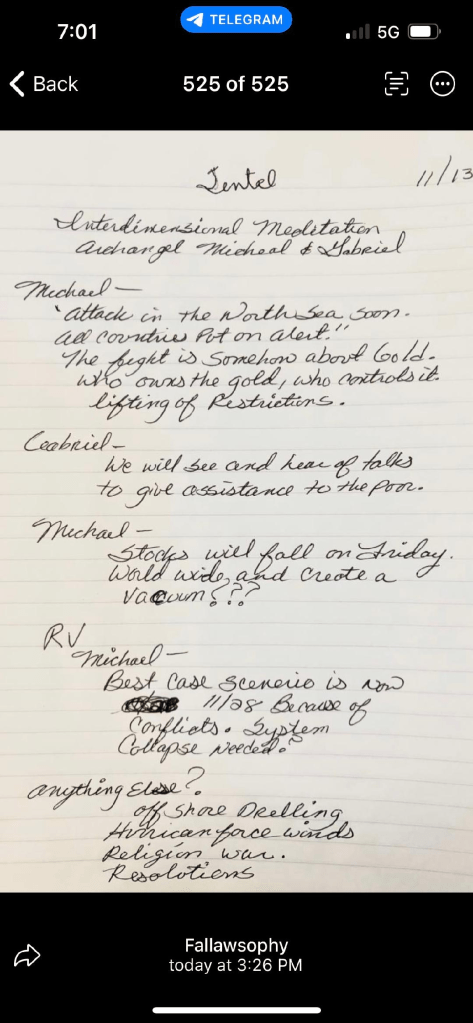 7:01
TELEGRAM
5G
Back
525 of 525
Jentel
11/13
Interdimensional Meditation
Archangel Micheal & Gabriel
Michael –
"Attack in the North Sea soon.
All countries Put on alert."
The fight is Somehow about Gold.
Who owns the gold, who controls it.
lifting of Restrictions.
Gabriel –
We will see and hear of talks
to give assistance to the poor.
Michael –
Stocks will fall on Friday.
World wide, and create a
vacuum???
RV
Michael –
Best Case Scenerio is now
11/28 Because of
Conflicts. System
Collapse Needed?
anything Else?
off Shore Drelling
Hurrican force winds
Religion war.
Resolutions
Fallawsophy
today at 3:26 PM